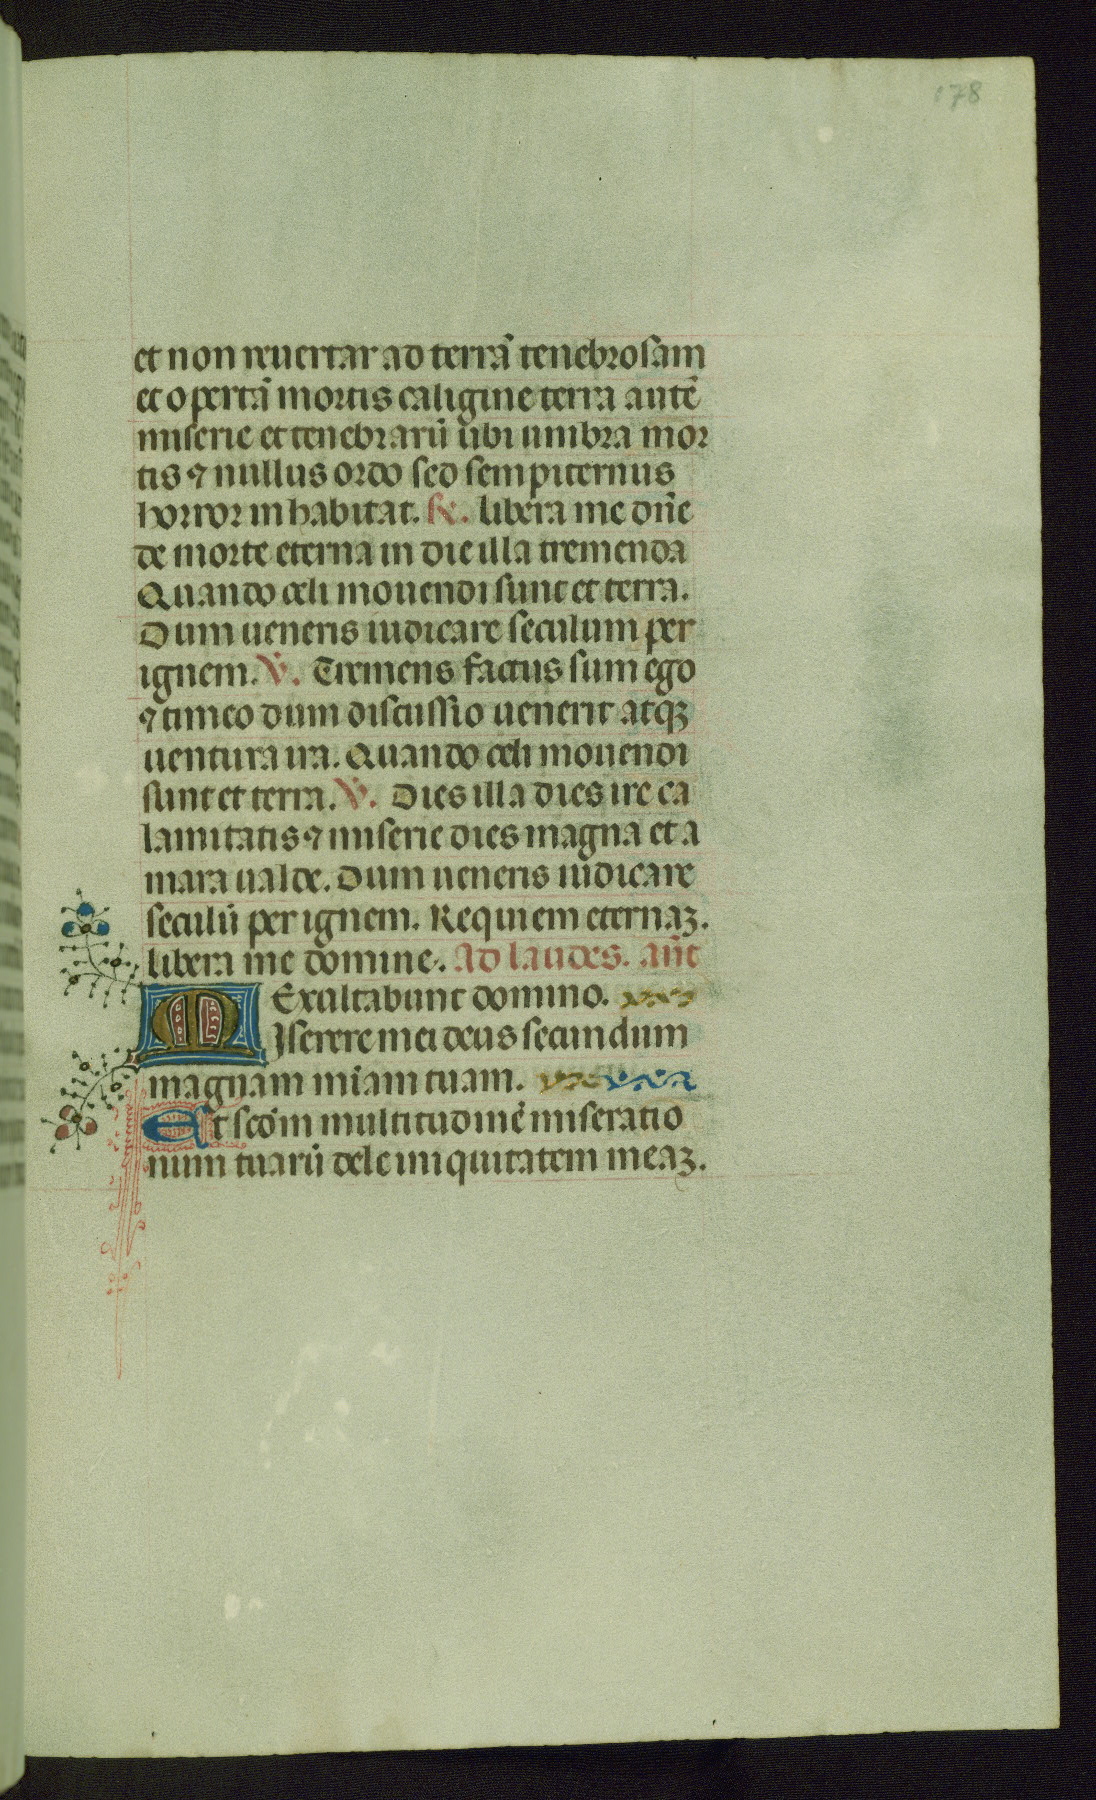 178
et non reuertar ad terrã tenebrosam
et opertã mortis caligine terra autẽ
miserie et tenebrarũ ubi umbra mor
tis ⁊ nullus ordo sed sempiternus
horror inhabitat. ℟. libera me dñe
de morte eterna in die illa tremenda
Quando celi mouendi sunt et terra.
Dum ueneris iudicare seculum per
ignem. ℣. Tremens factus sum ego
⁊ timeo dum discussio uenerit atqꝫ
uentura ira. Quando celi mouendi
sunt et terra. ℣. Dies illa dies ire ca
lamitatis ⁊ miserie dies magna et a
mara ualde. Dum ueneris iudicare
seculũ per ignem. Requiem eternaꝫ.
libera me domine. Ad laudes. añt
Exultabunt domino.
MIserere mei deus secundum
magnam miam tuam.
Et scdm multitudinẽ miseratio
num tuarũ dele iniquitatem meaꝫ.